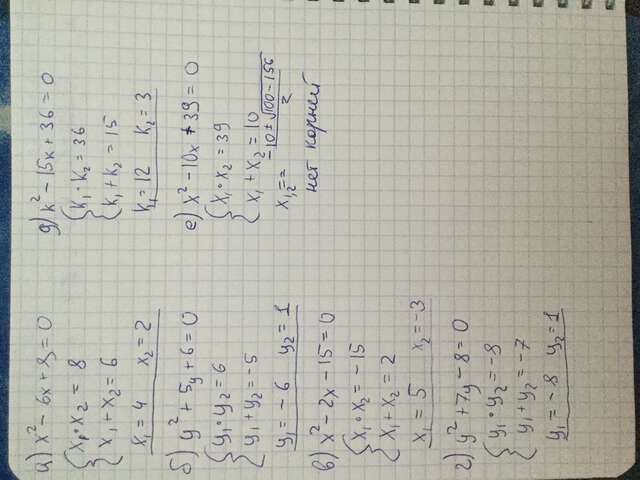 а) x² - 6x + 8 = 0
{ x₁·x₂ = 8
x₁ + x₂ = 6
x₁ = 4 x₂ = 2
б) y² + 5y + 6 = 0
{ y₁·y₂ = 6
y₁ + y₂ = -5
y₁ = -6 y₂ = 1
в) x² - 2x - 15 = 0
{ x₁·x₂ = -15
x₁ + x₂ = 2
x₁ = 5 x₂ = -3
г) y² + 7y - 8 = 0
{ y₁·y₂ = -8
y₁ + y₂ = -7
y₁ = -8 y₂ = 1
д) k² - 15k + 36 = 0
{ k₁·k₂ = 36
k₁ + k₂ = 15
k₁ = 12 k₂ = 3
е) x² - 10x + 39 = 0
{ x₁·x₂ = 39
x₁ + x₂ = 10
x₁,₂ = -10 ± √100 - 156 / 2
нет корней